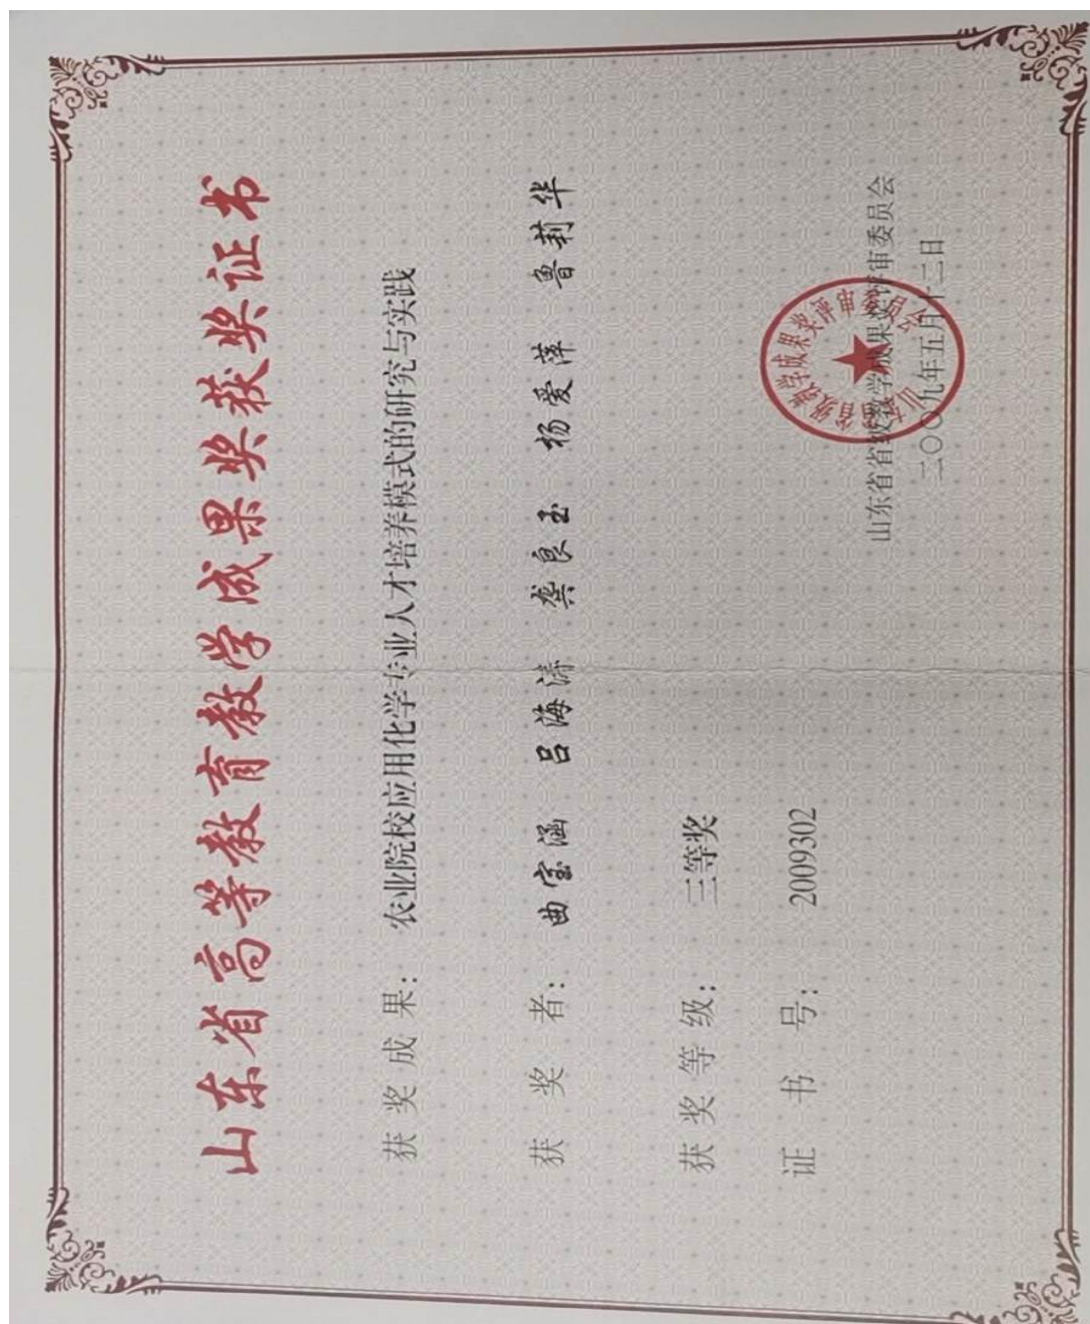 山东省高等教育教学成果奖获奖证书
获奖成果： 农业院校应用化学专业人才培养模式的研究与实践
获奖者： 曲宝涵 吕海涛 龚良玉 杨爱萍 鲁莉华
获奖等级： 三等奖
证书号： 2009302
山东省省级教学成果奖评审委员会
二〇〇九年五月十二日
山东省省级教学成果奖评审委员会